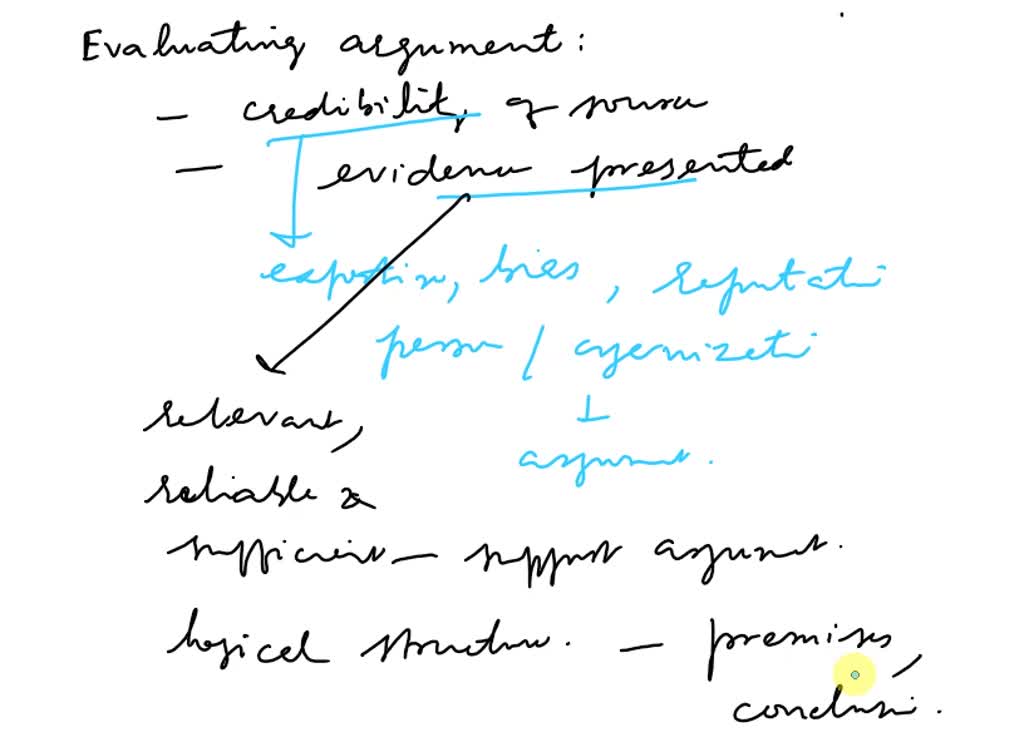 Evaluating argument:
- credibility of source
- evidence presented
expertise, bias, reputation
person / organization
argument.
relevant,
reliable &
sufficient - support argument.
logical structure. - premises,
conclusion.